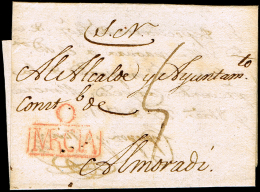 S. N.
Al Alcalde y Ayuntam.to
Const.l de
MRCIA
Almoradí.